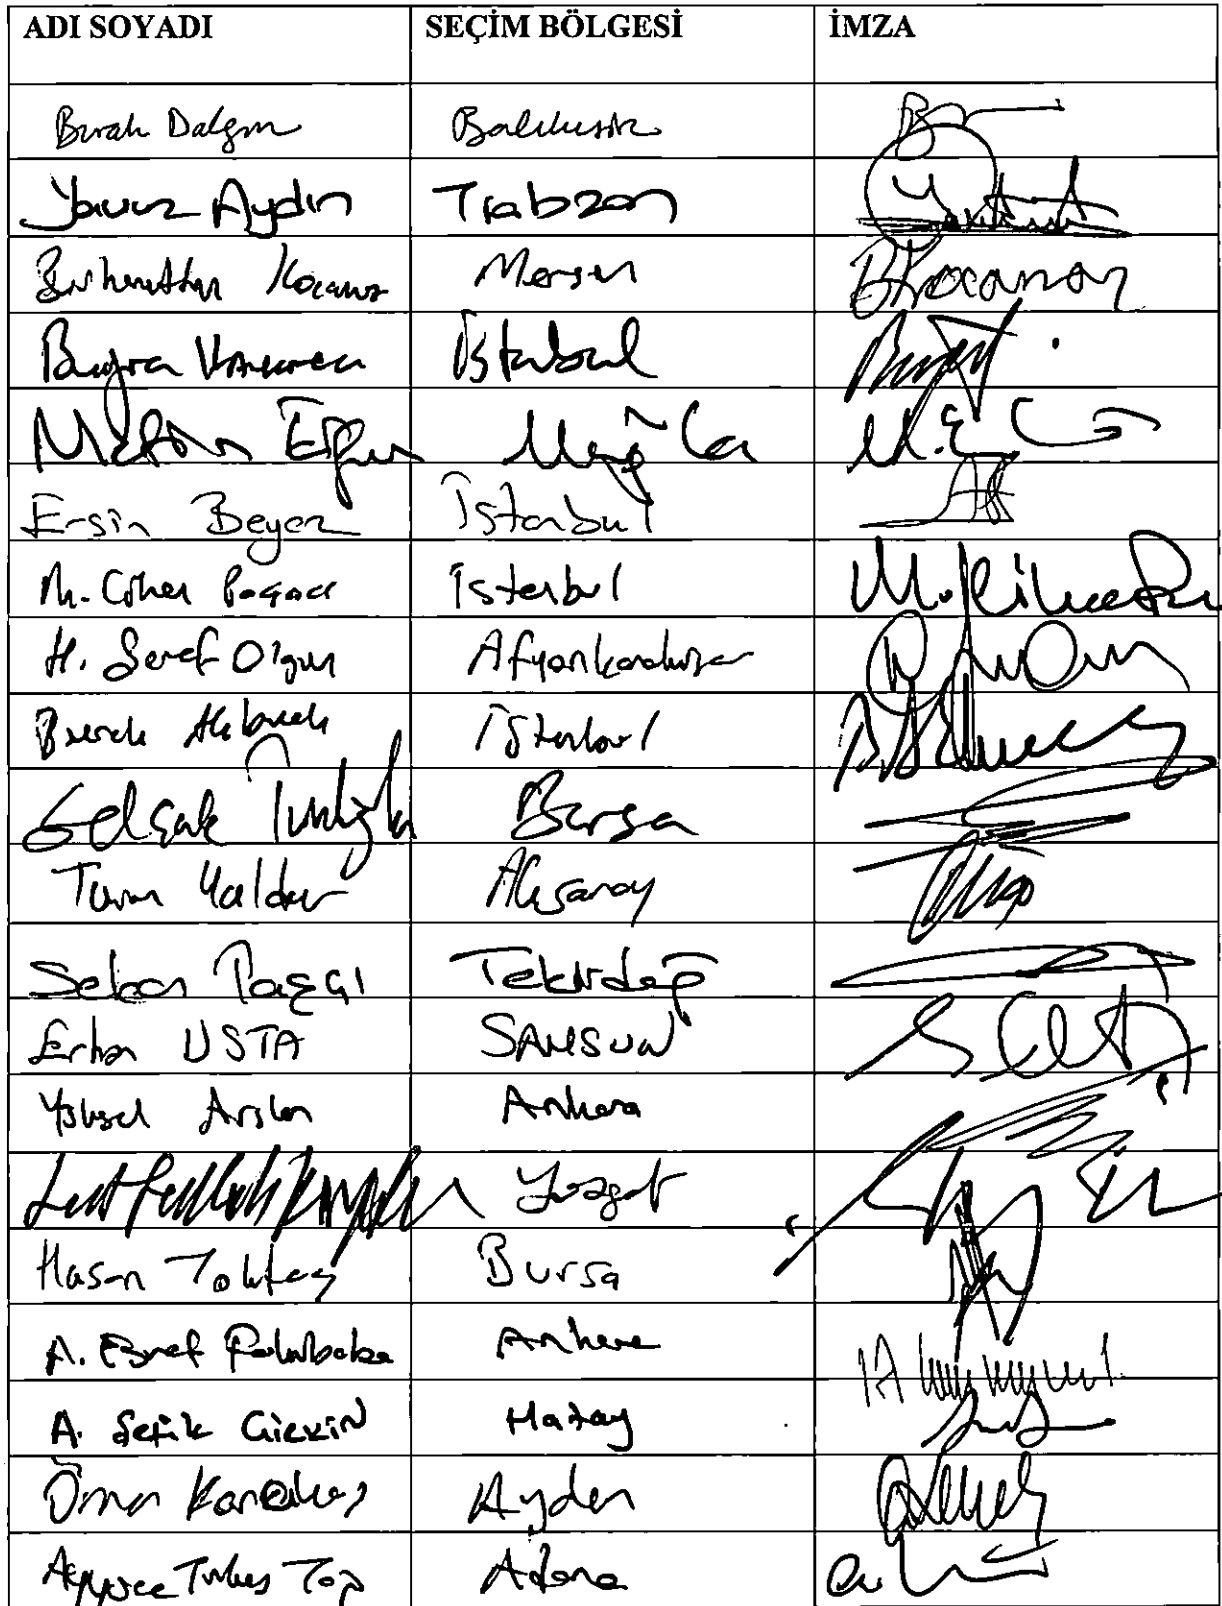 ADI SOYADI SEÇİM BÖLGESİ İMZA
Burak Dalgın Balıkesir
Yavuz Aydın Trabzon
Burhanettin Kocamaz Mersin
Buğra Kavuncu İstanbul
Metin Ergun Muğla
Ersin Beyaz İstanbul
M. Cihan Paçacı İstanbul
H. Şeref Olgun Afyonkarahisar
Burak Akburak İstanbul
Selçuk Türkoğlu Bursa
Turan Yaldır Aksaray
Selcan Taşçı Tekirdağ
Erhan USTA SAMSUN
Yüksel Arslan Ankara
Lütfullah Kayalar Yozgat
Hasan Toktaş Bursa
A. Eşref Fakıbaba Ankara
A. Şefik ÇİRKİN Hatay
Ömer Karakaş Aydın
Ayyüce Türkeş Taş Adana